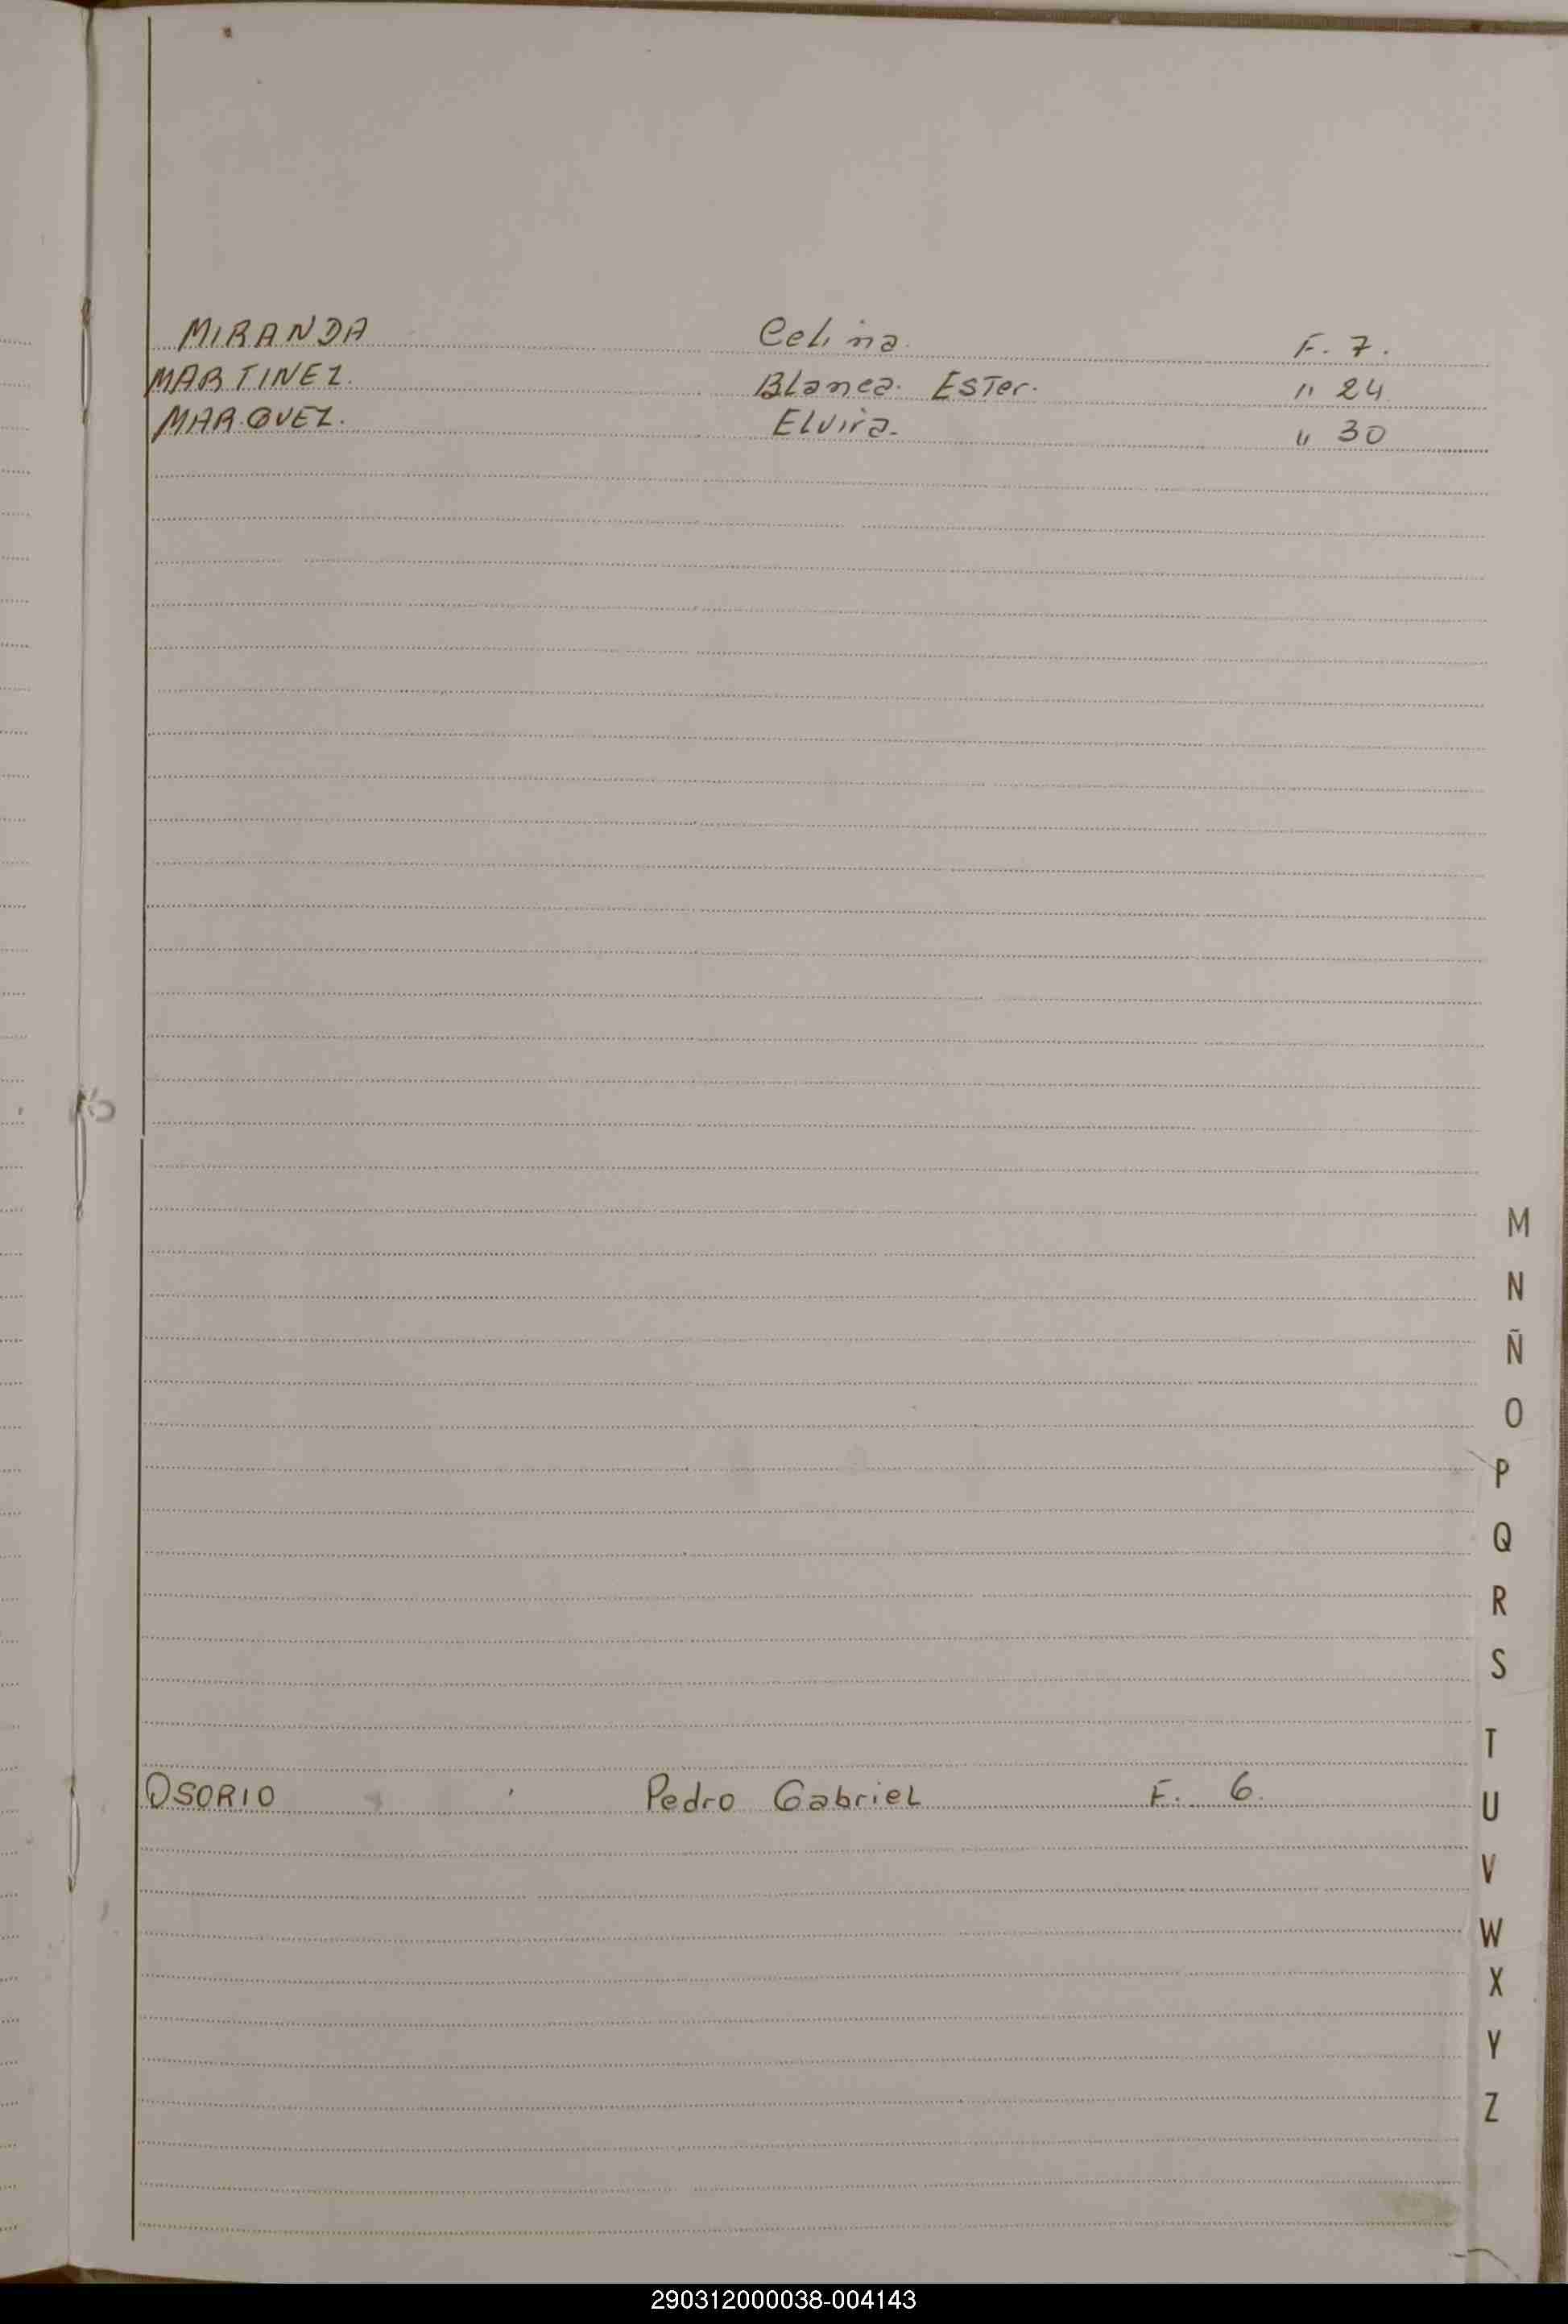 MIRANDA Celina F. 7.
MARTINEZ. Blanca. Ester. " 24
MARQUEZ. Elvira. " 30
M
N
Ñ
O
P
Q
R
S
T
OSORIO Pedro Gabriel F. 6.
U
V
W
X
Y
Z
290312000038-004143